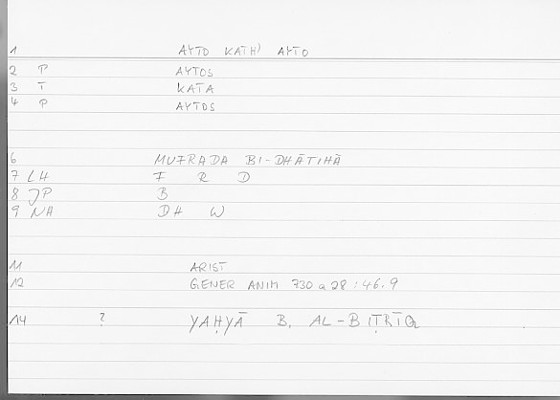 1 AYTO KATH) AYTO
2 P AYTOS
3 T KATA
4 P AYTOS
6 MUFRADA BI-DHĀTIHĀ
7 LH F R D
8 JP B
9 NA DH W
11 ARIST
12 GENER ANIM 730 a 28 : 46.9
14 ? YAḤYĀ B. AL-BIṬRĪQ